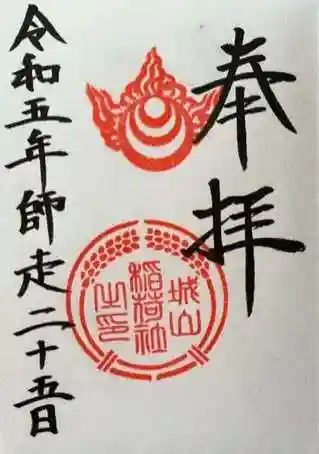 奉拝
城山
稲荷社
之印
令和五年師走二十五日